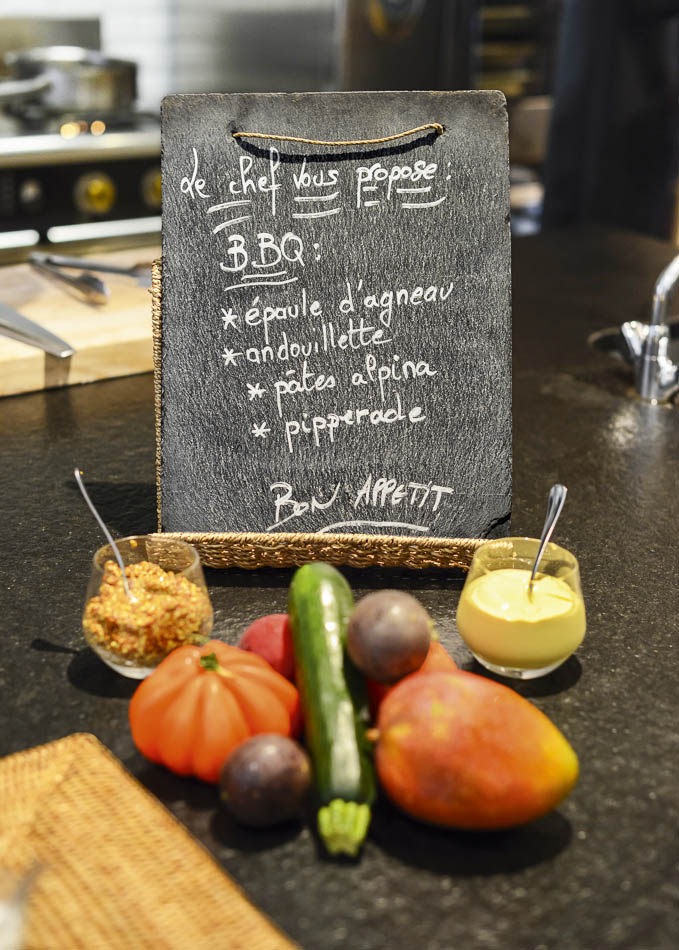 Le chef vous propose :
BBQ :
* épaule d'agneau
* andouillette
* pâtes alpina
* pipperade
BON APPETIT